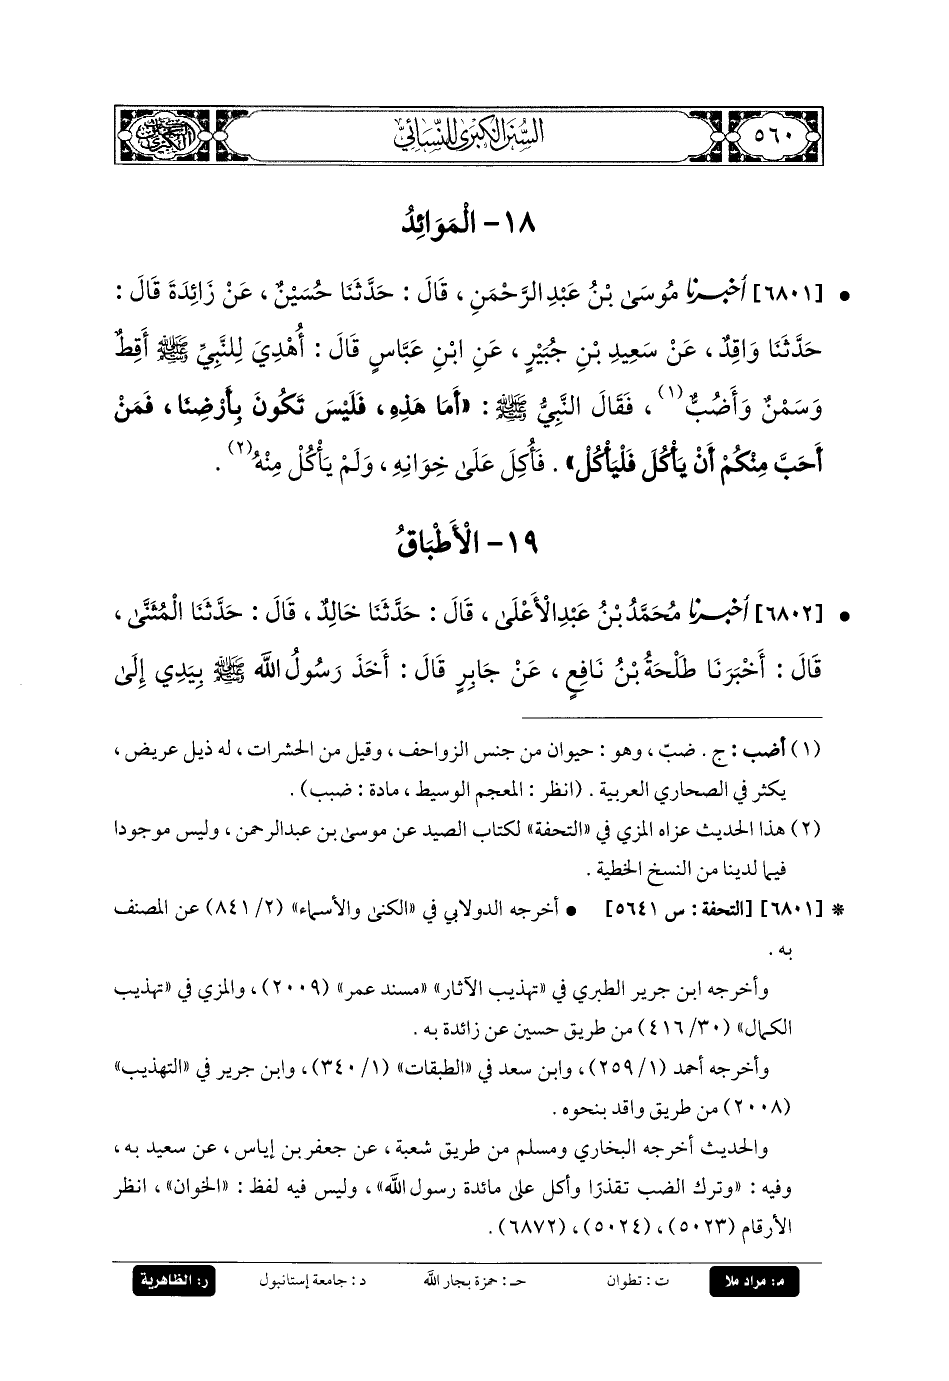 ٥٦٠
السُّنَنُ الْكُبْرَى لِلنَّسَائِيِّ
١٨- الْمَوَائِدُ
• [٦٨٠١] أَخْبَرَنَا مُوسَىٰ بْنُ عَبْدِ الرَّحْمَنِ ، قَالَ : حَدَّثَنَا حُسَيْنٌ ، عَنْ زَائِدَةَ قَالَ :
حَدَّثَنَا وَاقِدٌ ، عَنْ سَعِيدِ بْنِ جُبَيْرٍ ، عَنِ ابْنِ عَبَّاسٍ قَالَ : أُهْدِيَ لِلنَّبِيِّ ﷺ أَقِطٌ
وَسَمْنٌ وَأَضُبٌّ(١) ، فَقَالَ النَّبِيُّ ﷺ : «أَمَا هَذِهِ ، فَلَيْسَ تَكُونَ بِأَرْضِنَا ، فَمَنْ
أَحَبَّ مِنْكُمْ أَنْ يَأْكُلَ فَلْيَأْكُلْ» . فَأُكِلَ عَلَىٰ خِوَانِهِ ، وَلَمْ يَأْكُلْ مِنْهُ(٢) .
١٩- الْأَطْبَاقُ
• [٦٨٠٢] أَخْبَرَنَا مُحَمَّدُ بْنُ عَبْدِ الْأَعْلَىٰ ، قَالَ : حَدَّثَنَا خَالِدٌ ، قَالَ : حَدَّثَنَا الْمُثَنَّىٰ ،
قَالَ : أَخْبَرَنَا طَلْحَةُ بْنُ نَافِعٍ ، عَنْ جَابِرٍ قَالَ : أَخَذَ رَسُولُ اللَّه ﷺ بِيَدِي إِلَىٰ
(١) أضب : ج . ضبّ ، وهو : حيوان من جنس الزواحف ، وقيل من الحشرات ، له ذيل عريض ،
يكثر في الصحاري العربية . (انظر : المعجم الوسيط ، مادة : ضبب) .
(٢) هذا الحديث عزاه المزي في «التحفة» لكتاب الصيد عن موسىٰ بن عبدالرحمن ، وليس موجودا
فيما لدينا من النسخ الخطية .
* [٦٨٠١] [التحفة : س ٥٦٤١] • أخرجه الدولابي في «الكنىٰ والأسماء» (٢/ ٨٤١) عن المصنف
به .
وأخرجه ابن جرير الطبري في «تهذيب الآثار» «مسند عمر» (٢٠٠٩) ، والمزي في «تهذيب
الكمال» (٣٠/ ٤١٦) من طريق حسين عن زائدة به .
وأخرجه أحمد (١/ ٢٥٩) ، وابن سعد في «الطبقات» (١/ ٣٤٠) ، وابن جرير في «التهذيب»
(٢٠٠٨) من طريق واقد بنحوه .
والحديث أخرجه البخاري ومسلم من طريق شعبة ، عن جعفر بن إياس ، عن سعيد به ،
وفيه : «وترك الضب تقذرًا وأكل علىٰ مائدة رسول اللَّه» ، وليس فيه لفظ : «الخوان» ، انظر
الأرقام (٥٠٢٣) ، (٥٠٢٤) ، (٦٨٧٢) .
م: مراد ملا ت : تطوان حـ : حمزة بجار اللَّه د : جامعة إستانبول ر: الظاهرية